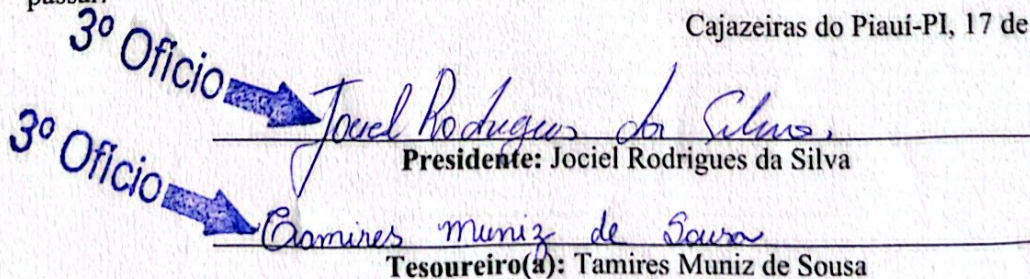 passar.
Cajazeiras do Piauí-PI, 17 de
3º Ofício
Jociel Rodrigues da Silva.
Presidente: Jociel Rodrigues da Silva
3º Ofício
Tamires Muniz de Sousa
Tesoureiro(a): Tamires Muniz de Sousa